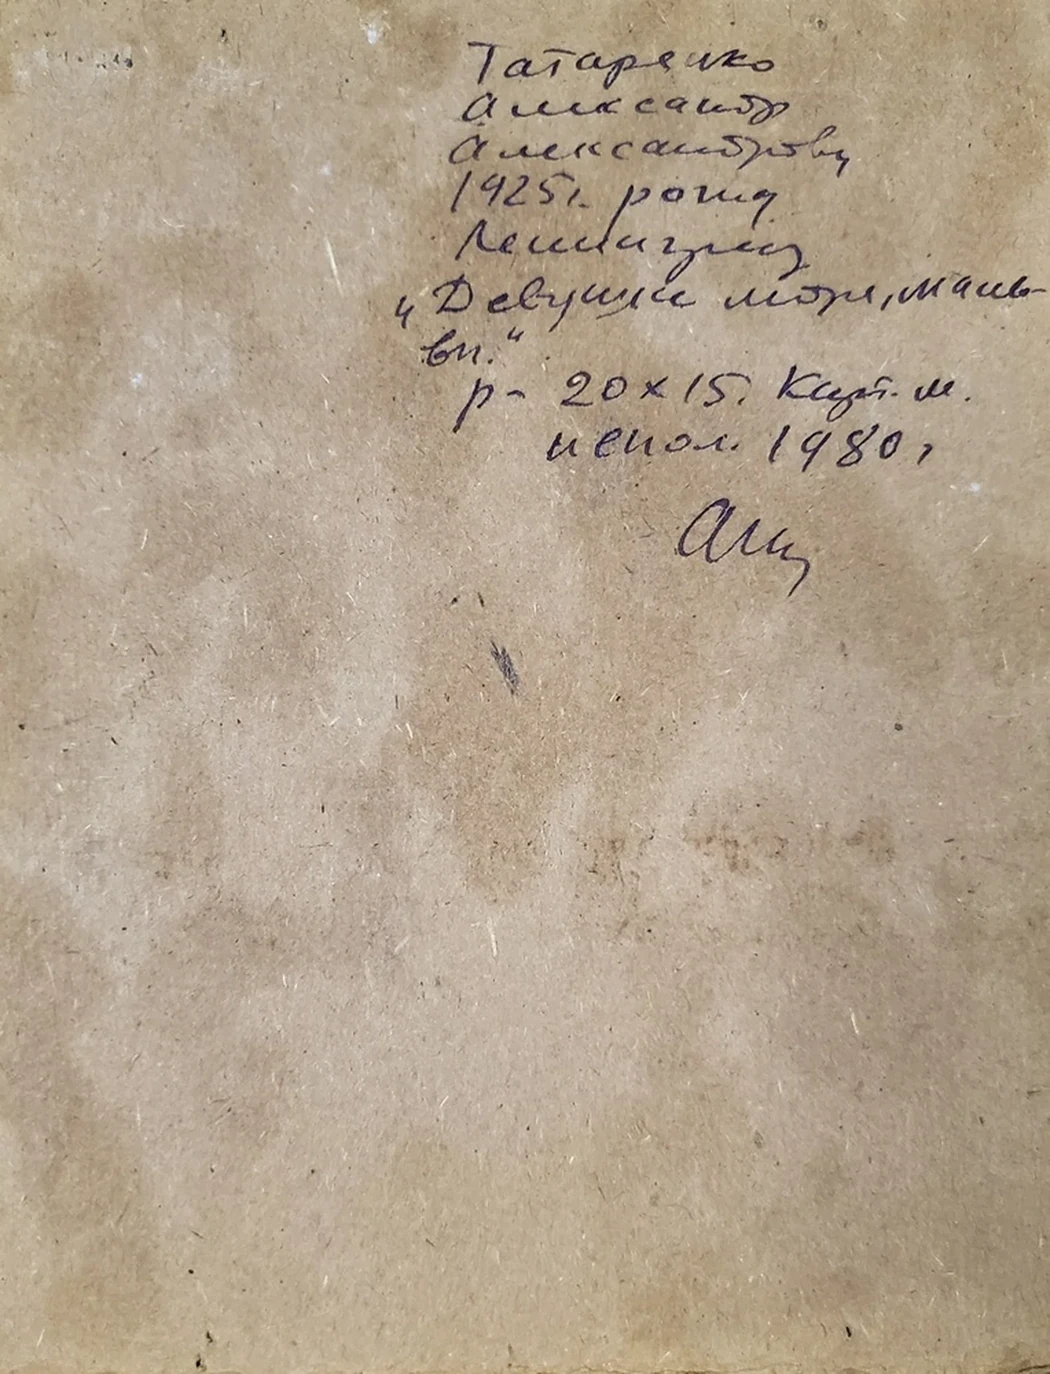 Татаренко
Александр
Александрович
1925г. рожд
Ленинград
"Девушка
р- 20х15. Карт. м.
испол. 1980г